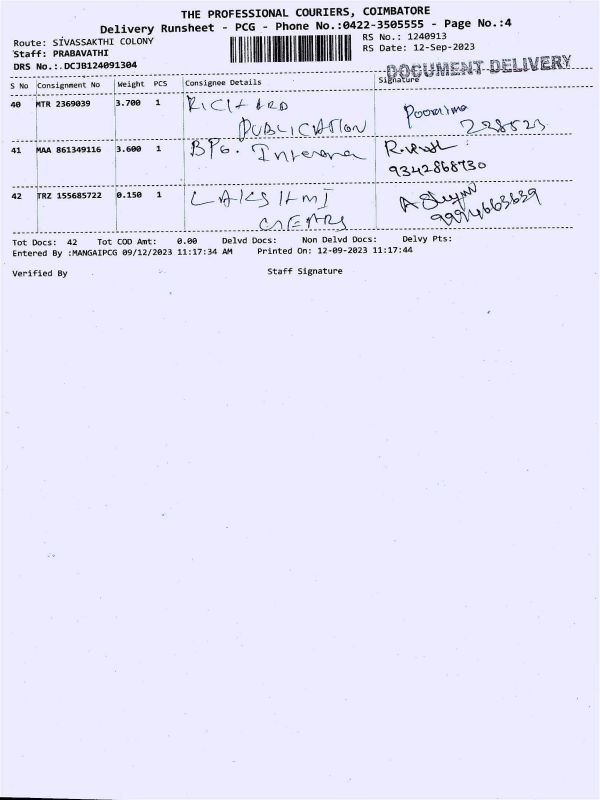 THE PROFESSIONAL COURIERS, COIMBATORE
Delivery Runsheet - PCG - Phone No.:0422-3505555 - Page No.:4
Route: SIVASSAKTHI COLONY
RS No.: 1240913
Staff: PRABAVATHI
RS Date: 12-Sep-2023
DRS No.:.DCJB124091304
DOCUMENT DELIVERY
S No Consignment No Weight PCS Consignee Details Signature
40 MTR 2369039 3.700 1 RICHARD Poornima
PUBLICATION 228523
41 MAA 861349116 3.600 1 BPG.
9342868730
42 TRZ 155685722 0.150 1 LAKSHMI
9994663639
Tot Docs: 42 Tot COD Amt: 0.00 Delvd Docs: Non Delvd Docs: Delvy Pts:
Entered By :MANGAIPCG 09/12/2023 11:17:34 AM Printed On: 12-09-2023 11:17:44
Verified By Staff Signature